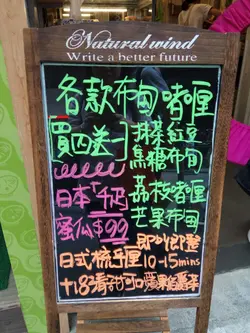 Natural wind
Write a better future
各款布甸啫喱
買四送一
抹茶紅豆
焦糖布甸
日本「千巧
荔枝啫喱
蜜瓜$99
芒果布甸
即叫即整
日式梳乎厘10-15mins
+18蚊